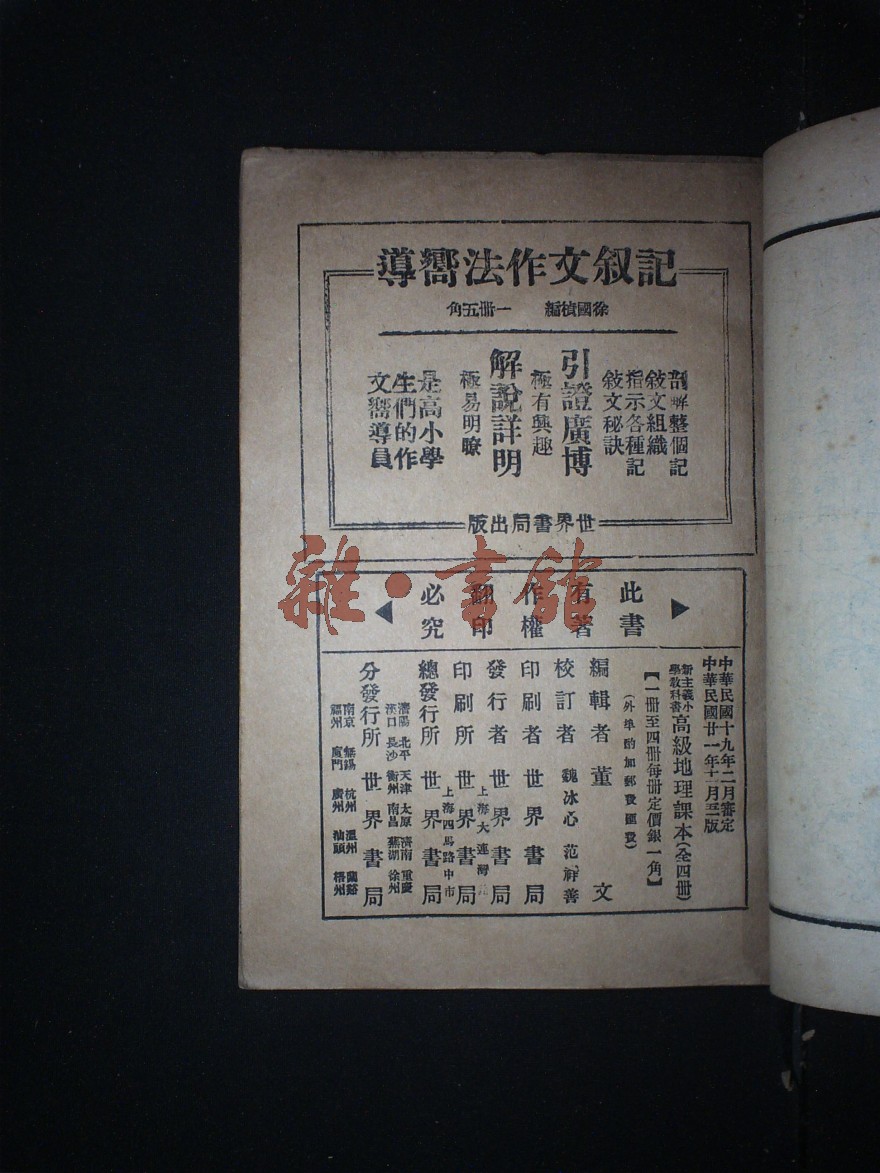 記叙文作法嚮導
徐國楨編　一册五角
剖解整個記
敍文組織
指示各種記
敍文秘訣
引證廣博
極有興趣
解說詳明
極易明瞭
是高小學
生們的作
文嚮導員
世界書局出版
此書
有著
作權
翻印
必究
雜·書館
中華民國十九年二月審定
中華民國廿一年十二月版
新主義小學教科書高級地理課本(全四册)
【一册至四册每册定價銀一角】
(外埠酌加郵費匯費)
編輯者　董文
校訂者　魏冰心　范祥善
印刷者　世界書局
發行者　世界書局
上海大連灣
印刷所　世界書局
上海四馬路中市
總發行所　世界書局
瀋陽　北平　天津　太原　濟南　重慶
漢口　長沙　衡州　南昌　蕪湖　徐州
分發行所　世界書局
南京　無錫　杭州　溫州　蘭谿
福州　廈門　廣州　汕頭　梧州